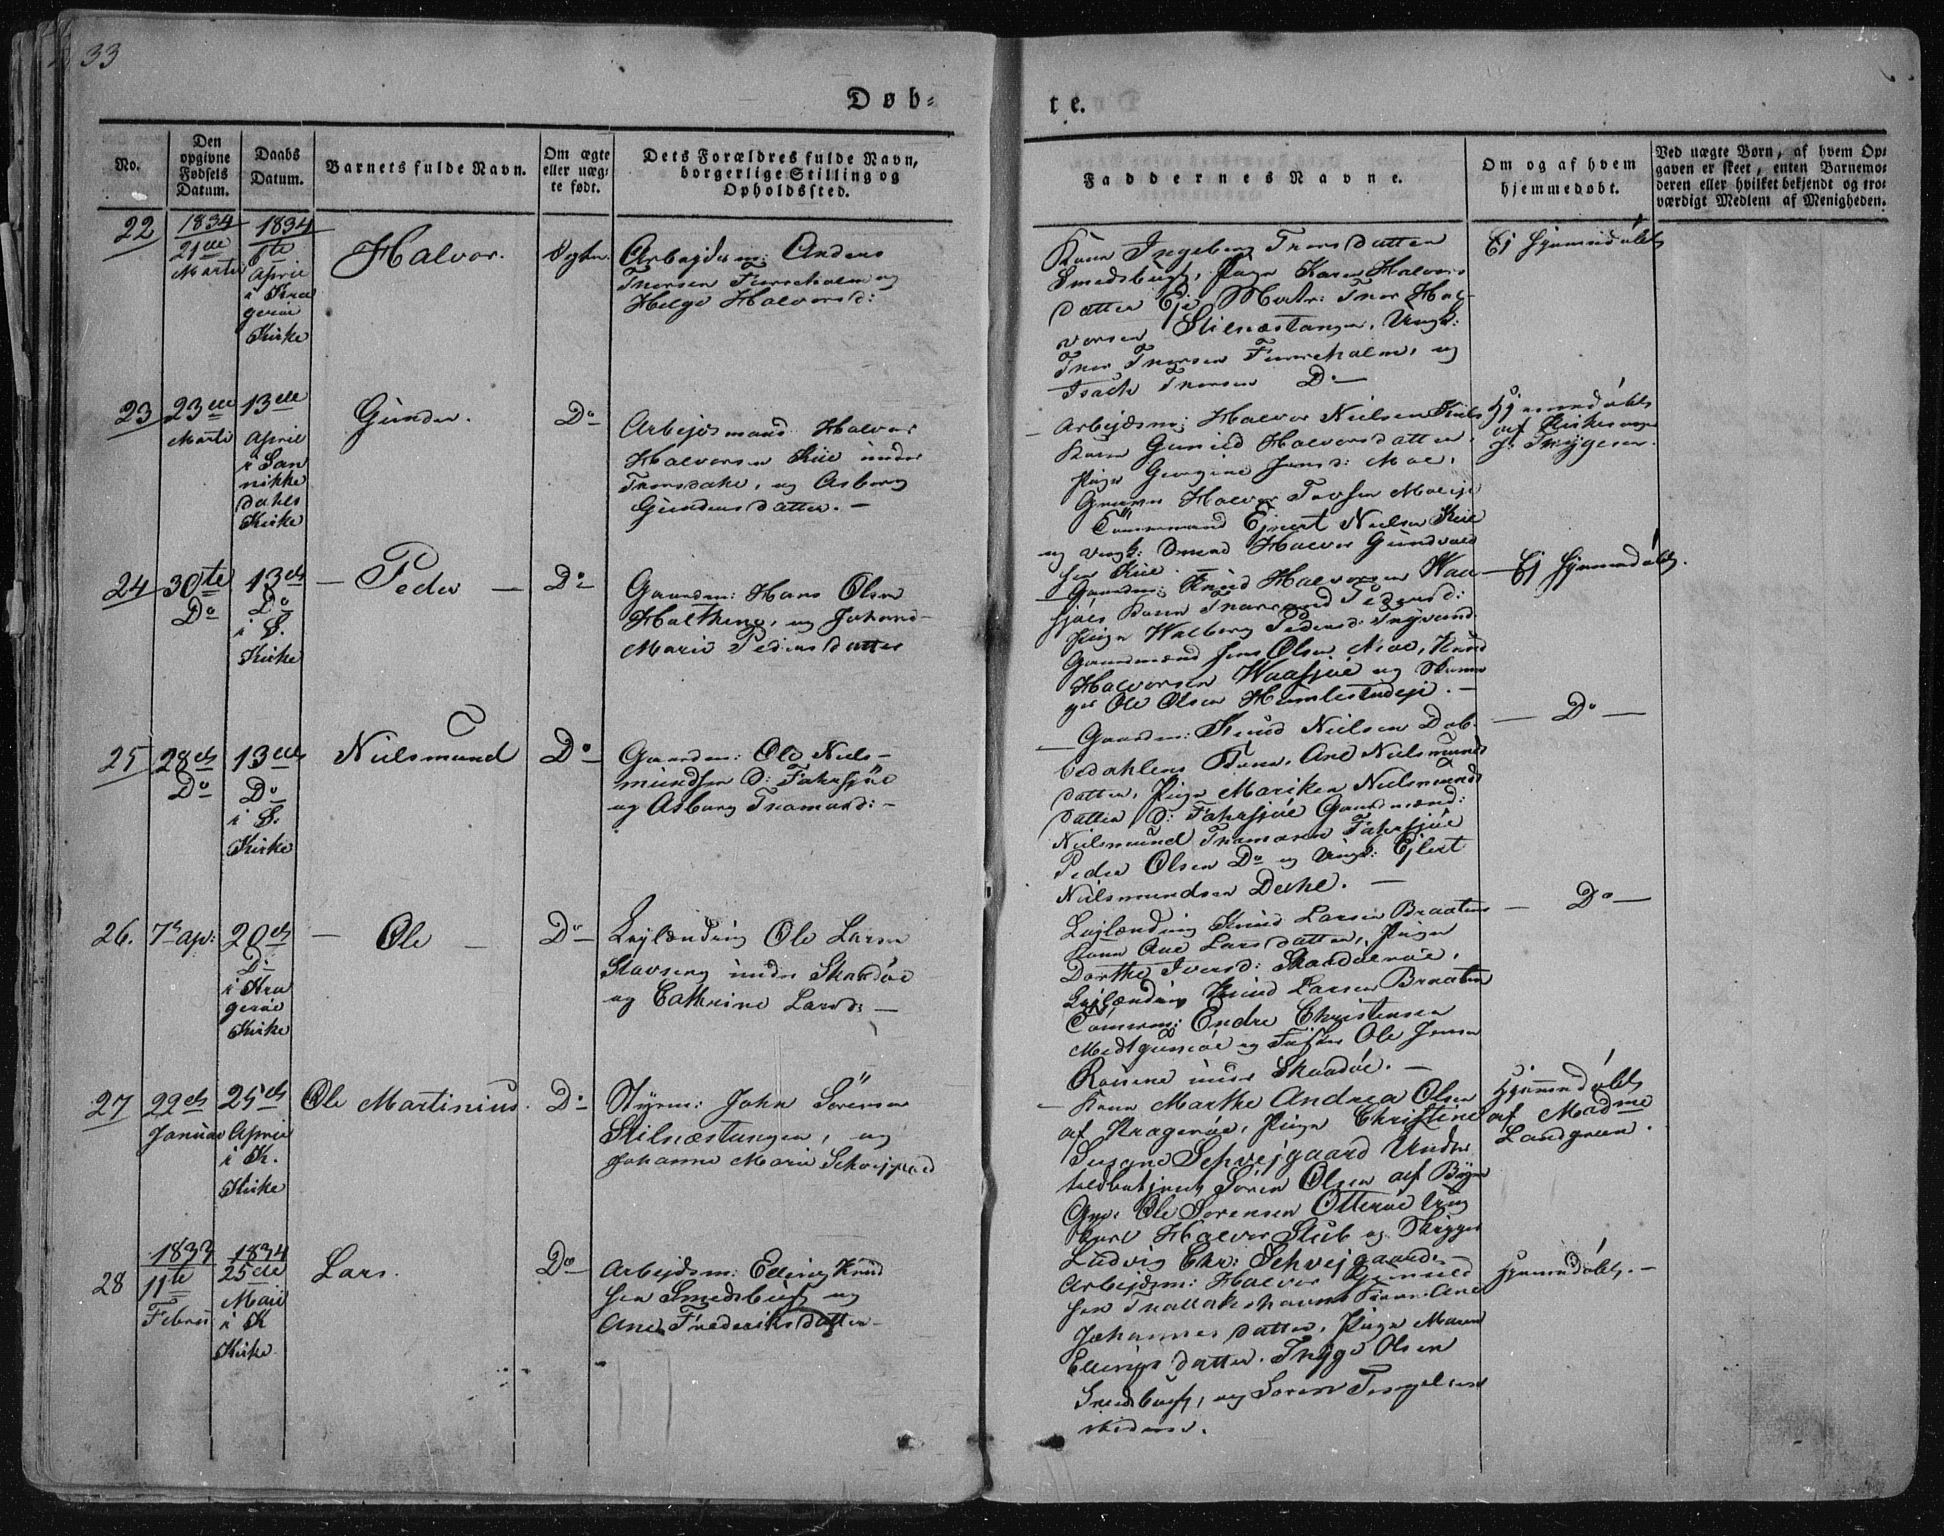 33
Døb=
te.
No.
Den
opgivne
Fødsels
Datum.
Daabs
Datum.
Barnets fulde Navn.
Om ægte
eller uæg=
te født.
Dets Forældres fulde Navn,
borgerlige Stilling og
Opholdssted.
Faddernes Navne.
Om og af hvem
hjemmedøbt.
Ved uægte Børn, af hvem Op=
gaven er skeet, enten Barnemo=
deren eller hvilket bekjendt og tro=
værdigt Medlem af Menigheden.
22
1834
21de
Marti
1834
6te
April
i Kra
gerøe
Kirke
Halvor.
Ægte.
Arbejdsm: Anders
Thorsen Furreholm og
Helge Halvorsd:
Kone Ingeborg Thorsdatter
Smedsbugt, Pige Karen Halvors
datter Eje Matr: Thor Hal-
vorsen Stilnæstangen, Ungk:
Thor Thorsen Furreholm, og
Isach Thorsen Do
Ej hjemmedøbt
23
23de
Marti
13de
April
i San
nikke
dahls
Kirke
Gunder.
Do
Arbejdsmand Halvor
Halvorsen Kiil under
Thorsdahl, og Asborg
Gundersdatter. -
Arbejdsm: Halvor Nielsen Kiil
Kone Gunild Halvorsdatter,
Pige Gurgine Jensd: Moe,
Halvor
Tømmermand Ejvert Nielsen Kiil
og Ungk: Halvor Gundvald
sen Kiil.
Hjemmedøbt
af Kirkesanger
Thygesen.
24
30te
Do
13de
Do
i S.
Kirke
Peder
Do
Gaardm: Hans Olsen
Holtheng, og Johanne
Marie Pedersdatter
Gaardm: Knud Halvorsen Waa
sjøes Kone Pedersd:
Pige Walborg Pedersd:
Gaardmænd Jens Olsen Moe, Knud
Halvorsen Waasjøe og
Ole Olsen Humlestadeje. -
Ej hjemmedøbt.
25
28de
Do
13de
Do
i S.
Kirke
Nielsmund
Do
Gaardm: Ole Niels-
mundsen S: Fahrsjøe
og Asborg Thomasd: -
Gaardm: Knud Nielsen Dob
bedahlens Kone, Ane Nielsmunds
datter, Pige Mariken Nielsmunds
datter S: Fahrsjøe Gaardmænd:
Nielsmund Thomasen Fahrsjøe
Peder Olsen Do og Ungk: Ejlert
Nielsmundsen Derhl. -
Do
26.
7de ap:
20de
Do
i Kra
gerøe
Kirke
Ole
Do
Lejlænding Ole Larsen
Stavseng under Skaadøe
og Cathrine Larsd: -
Lejlænding Knud Larsen Braatens
Kone Ane Larsdatter, Pige
Dorthe Iversd: Skaadøerøe,
Lejlænding Knud Larsen Braaten
Tømerm: Endre Christensen
og Fisker Ole Jensen
under Skaadøe. -
Do
27
22de
Januar
25de
April
i K.
Kirke
Ole Martinius.
Do
Styrm: John Sørensen
Stilnæstangen, og
Johanne Marie Schvejgaard
Kone Marthe Andrea Olsen
af Kragerøe, Pige Christine
Susane Schvejgaard Under
toldbetjent Søren Olsen af Byen
Ole Sørensen Otterøe Ung
karl Halvor Stub og Skipper
Ludvig Chr: Schvejgaard. -
Hjemmedøbt
af Madme
Landgreen.
28
1833
11te
Febru
1834
25de
Maii
i K
Kirke
Lars.
Do
Arbejdsm: Elling Knud
sen Smedsbugt og
Ane Frederiksdatter -
Arbejdsm: Halvor
sen Kone Ane
Johannesdatter, Pige Maren
Ellingsdatter. Thyge Olsen
Smedsbugt, og Søren Tengelsen
Hjemmedøbt. -